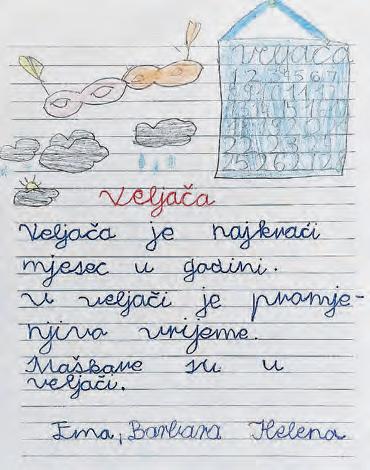 veljača
1 2 3 4 5 6 7
Veljača
Veljača je najkraći
mjesec u godini.
U veljači je promje-
njiva vrijeme.
Maškare su u
veljači.
Ema, Barbara Helena